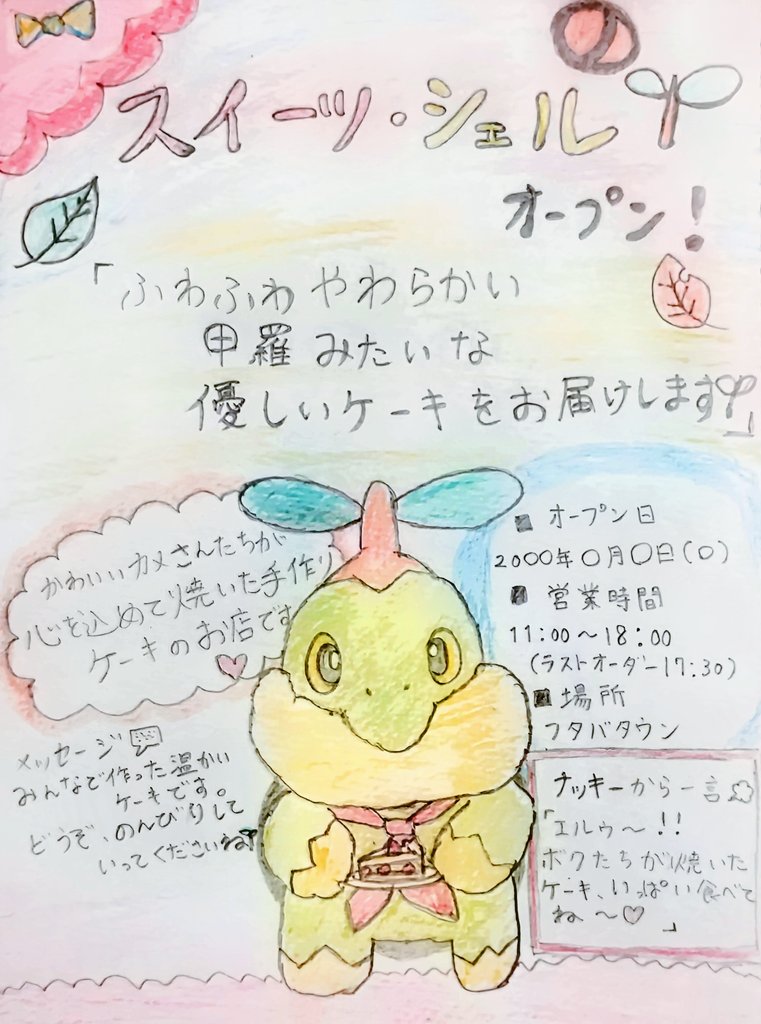 スイーツ・シェル
オープン!
「ふわふわやわらかい
甲羅みたいな
優しいケーキをお届けします」
かわいいカメさんたちが
心を込めて焼いた手作り
ケーキのお店です
■ オープン日
2000年〇月〇日(〇)
■ 営業時間
11:00〜18:00
(ラストオーダー17:30)
■ 場所
フタバタウン
メッセージ
みんなで作った温かい
ケーキです。
どうぞ、のんびりして
いってくださいね
ナッキーから一言
「エルゥ〜!!
ボクたちが焼いた
ケーキ、いっぱい食べて
ね〜♡」